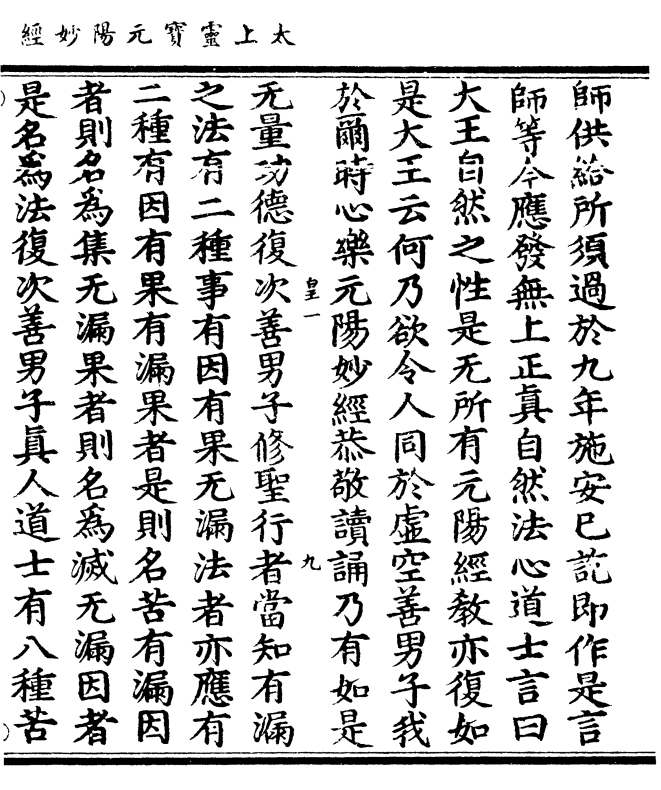 太上靈寶元陽妙經
師供給所須過於九年施安已訖即作是言
師等今應發無上正真自然法心道士言曰
大王自然之性是无所有元陽經教亦復如
是大王云何乃欲令人同於虛空善男子我
於爾時心樂元陽妙經恭敬讀誦乃有如是
皇一 九
无量功德復次善男子修聖行者當知有漏
之法有二種事有因有果无漏法者亦應有
二種有因有果有漏果者是則名苦有漏因
者則名為集无漏果者則名為滅无漏因者
是名為法復次善男子真人道士有八種苦